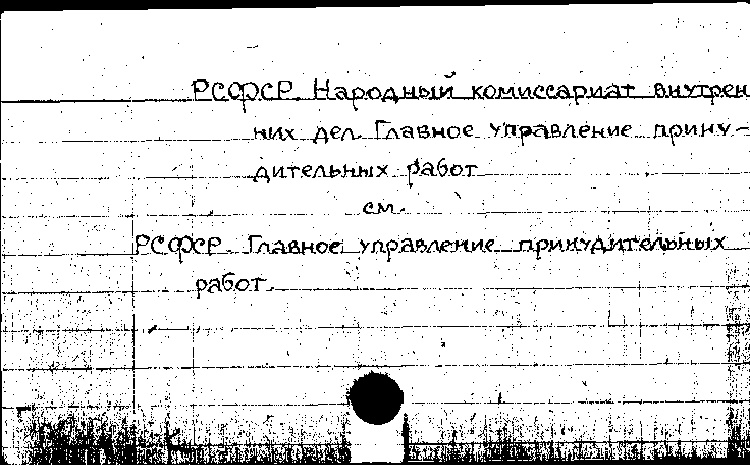 РСФСР. Народный комиссариат внутрен
них дел. Главное управление прину-
дительных работ
см.
РСФСР. Главное управление принудительных
работ.